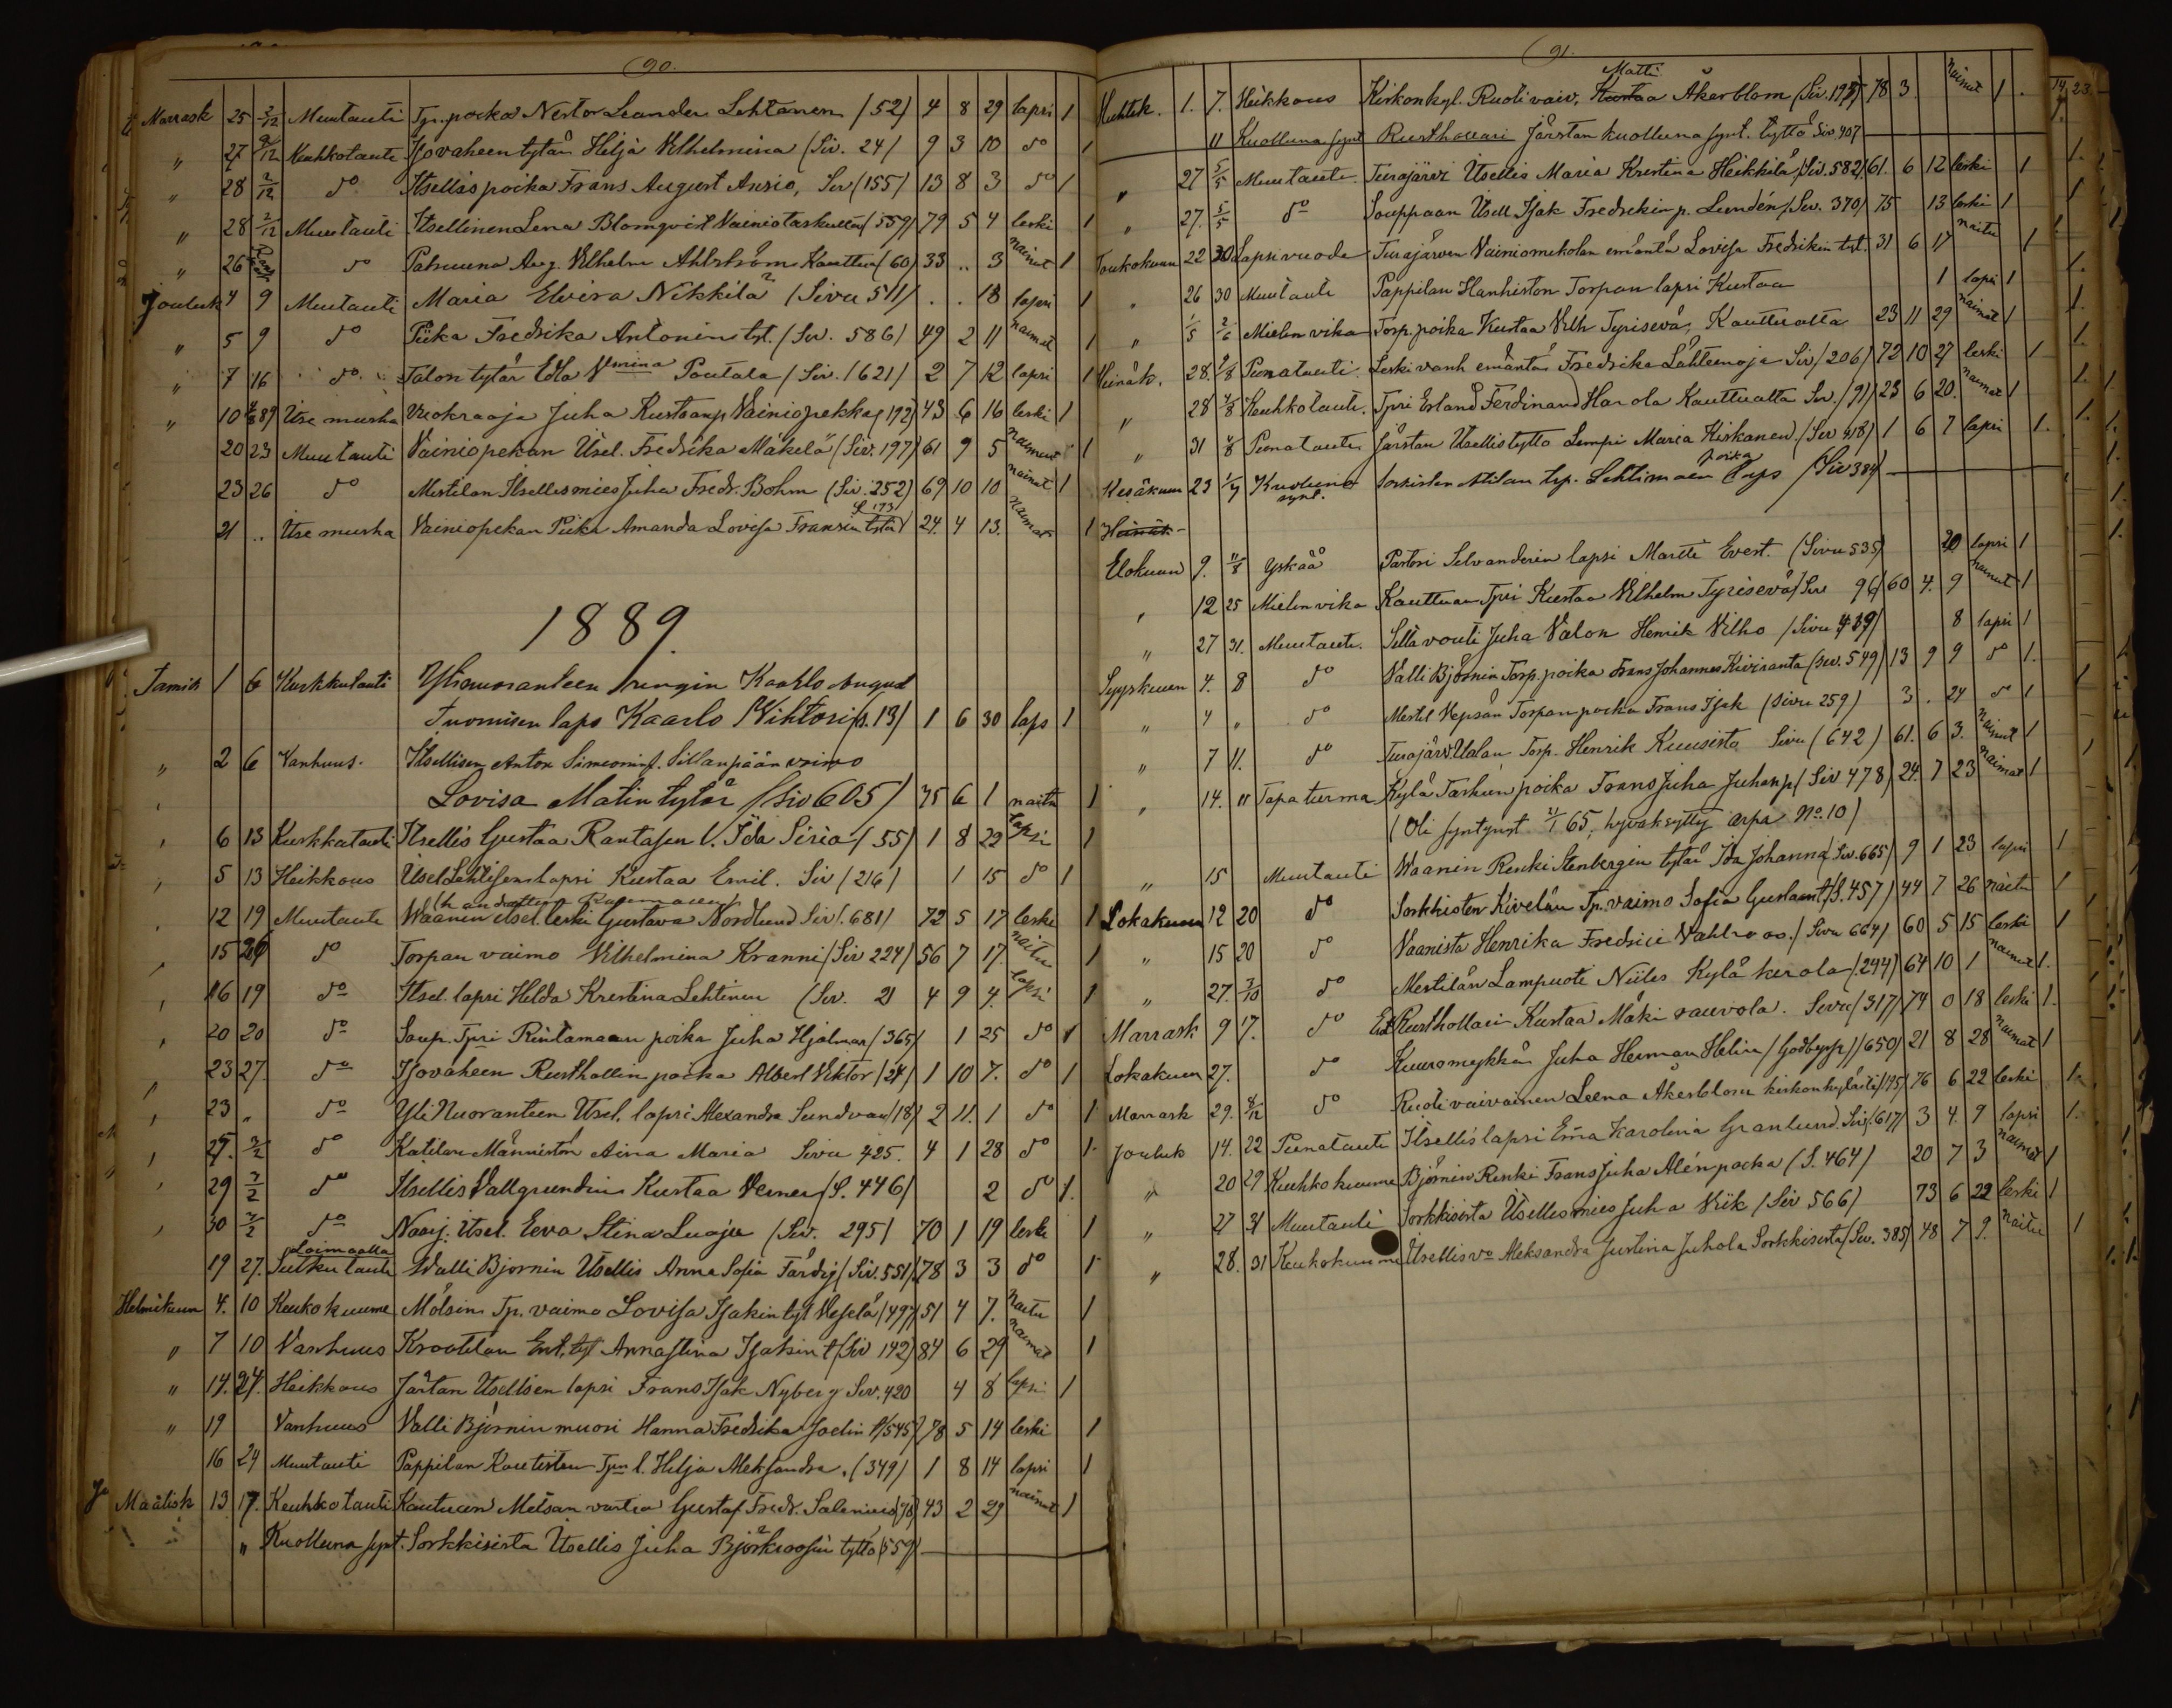 90.
Marrask 25 2/12 Muutauti Tpr. poika Nestor Leander Lehtanen (52) 4 8 29 lapsi 1
" 27 2/12 Keuhkotauti Isovaheen tytär Hilja Vilhelmina (Siv. 24) 9 3 10 do 1
" 28 2/12 do Itsellis poika Frans August Ansio, Siv (155) 13 8 3 do 1
" 28 2/12 Muutauti Itsellinen Lena Blomqvist Vainiotaskulta (559) 79 5 4 leski 1
" 26 do Patruuna Aug. Vilhelm Ahlström Kauttua (60) 33 .. 3 nainut 1
Jouluk 4 9 Muutauti Maria Elvira Nikkilä (Sivu 511) . . 18 lapsi 1
" 5 9 do Piika Fredrika Antonin tyt. (Siv. 586) 49 2 11 naimat 1
" 7 16 do Talon tytär Edla Vmina Poutala (Siv. 1621) 2 7 12 lapsi 1
" 10 Itse murha Vuokraaja Juha Kustaanp Vainiopekka (192) 43 6 16 leski 1
20 23 Muutauti Vainiopekan Itsel. Fredrika Mäkelä (Siv. 197) 61 9 5 1
23 26 do Mestilan Itsellesmies Juha Fredr. Bohm (Siv. 252) 69 10 10 nainut 1
21 .. Itse murha Vainiopekan Piika Amanda Lovisa Fransin tytär 24. 4 13. naimat 1
1889.
Tamik 1 6 Kurkkutauti Yliououranteen rengin Kaarlo August
Tuomisen laps Kaarlo Vihtori (s. 13) 1 6 30 laps 1
" 2 6 Vanhuus. Itsellisen Anton Simeoninp. Sillanpään vaimo
Lovisa Matin tytär (Siv 605) 75 6 1 naitu 1
" 6 13 Kurkkutauti Itsellis Gustaa Rantasen l. Ida Siria (55) 1 8 22 lapsi 1
" 5 13 Heikkous Itsel Lehtisens lapsi Kustaa Emil. Siv (216) 1 15 do 1
" 12 19 Muutauti Waanin itsel. leski Gustava Nordlund Siv (681) 72 5 17 leski 1
" 15 26 do Torpan vaimo Vilhelmina Kranni (Siv 224) 56 7 17. naitu 1
" 16 19 do Itsel. lapsi Hilda Kristina Lehtinen (Siv. 2) 4 9 4. lapsi 1
" 20 20 do Soup. Tpri Rintamaan poika Juha Hjalmar (365) 1 25 do 1
" 23 27 do Isovaheen Rusthollin poika Albert Viktor (24) 1 10 7. do 1
" 23 " do Yli Nuoranteen Itsel. lapsi Alexandra Sundvan (18) 2 11. 1 do 1
" 27. 3/2 do Katilan Männistön Aina Maria Sivu 425. 4 1 28 do 1
" 29 3/2 do Itsellis Vallgrundin Kustaa Verner (S. 446) 2 do 1.
" 30 3/2 do Naarj. Itsel. Eeva Stina Luoja (Siv. 295) 70 1 19 leski 1
Loimaalla
19 27. Sutkutauti Walli Björnin Itsellis Anna Sofia Färdig (Siv. 551) 78 3 3 do 1
Helmikuun 4. 10 Keukokuume Mölsin Tp. vaimo Lovisa Isakin tyt Vesela (497) 51 4 7. naitu 1
" 7 10 Vanhuus Kroatilan Ent. tyt Annastina Isakin t (Siv 142) 84 6 29 naimat 1
" 14. 24. Heikkous Järtan Itsellisen lapsi Frans Isak Nyberg Siv. 420 4 8 lapsi 1
" 19 Vanhuus Valli Björnin muori Hanna Fredrika Joelin t (545) 78 5 14 leski 1
16 24 Muutauti Pappilan Kautisten Tpn l. Hilja Aleksandra. (349) 1 8 14 lapsi 1
Maalisk 13 17. Keuhkotauti Kautuan Metsän vartia Gustaf Fredr. Salenius (78) 43 2 29 nainut 1
" Kuolluna synt. Sorkkisista Itsellis Juha Björkroosin tyttö (559)
91.
Huhtik. 1. 7. Heikkous Kirkonkyl. Ruoti vaiv. Kustaa Matti Åkerblom (Siv. 195) 78 3 nainut 1.
11 Kuolluna synt Rusthollari Järstan kuolluna synt. tyttö Siv 407
" 27 5/5 Muutauti. Turajärvi Itsellis Maria Kristina Heikkilä (Siv. 582) 61. 6 12 leski 1
" 27. 5/5 do Souppaan Itsell Isak Fredrekin p. Lundén (Siv. 370) 75 13 leski 1
Toukokuun 22 30 Lapsivuode Turajärven Vainiomikolan emäntä Lovisa Fredrikin tyt. 31 6 17 naitu 1
" 26 30 Muutauti Pappilan Hanhiston Torpan lapsi Kustaa 1 lapsi 1
" 1/5 2/6 Mielen vika Torp. poika Kustaa Vilh Tyrisevä, Kauttualta 23 11 29 naimat 1
Heinäk. 28. 4/8 Punatauti. Leski vanh emäntä Fredrika Lähteenoja Siv (206) 72 10 27 leski 1
" 28 4/8 Keuhkotauti. Tpri Erland Ferdinand Harola Kauttualta Siv. (91) 23 6 20. naimat 1
" 31 4/8 Punatauti Järstan Itsellis tyttö Lempi Maria Kiskanen (Siv 418) 1 6 7 lapsi 1.
Kesäkuun 23 1/7 Kuolluna synt. Sorkisten Atilan trp. Lehtimäen poika laps (Siv 384)
Heinäk-
Elokuun 9. 11/8 Yskää Pastori Selvanderin lapsi Martti Evert. (Sivu 535) 20 lapsi 1
" 12 25 Mielen vika Kauttuan Tpri Kustaa Vilhelm Tyrisevä (Siv 96) 60 4. 9 nainut 1
" 27 31. Muutauti. Silta vouti Juha Valon Henrik Vilho (Sivu 439) 8 lapsi 1
Syyskuun 4. 8 do Valli Björnin Torp. poika Frans Johannes Kiviranta (Siv. 549) 13 9 9 do 1.
" 4 " do Mestil Vepsän Torpan poika Frans Isak (Sivu 259) 3. 24 do 1
" 7 11. do Turajärv. Uolan Torp. Henrik Kuusisto Sivu (642) 61. 6 3. nainut 1
" 14. " Tapaturma Kylä Tarkun poika Frans Juha Juhanp (Siv 478) 24. 7 23 naimat 1
(Oli syntynyt 21/1 65, hyväksytty arpa No. 10)
" 15 Muutauti Waanin Renki Stenbergin tytär Ida Johanna (Siv. 665) 9 1 23 lapsi 1
Lokakuun 12 20 do Sorkkisten Kivelän Tp. vaimo Sofia Gustaant (S. 457) 44 7 26 naitu 1
" 15 20 do Vaanista Henrika Fredrici Vahlroos. (Sivu 664) 60 5 15 leski 1
" 27. 3/10 do Mestilän Lampuoti Niiles Kyläkerola (244) 64 10 1 nainut 1.
Marrask 9 17. do Ent Rusthollari Kustaa Mäki rauvola. Sivu (317) 74 0 18 leski 1.
Lokakuun 27. do Kuuromykkä Juha Herman Helin (Godbyssä) (650) 21 8 28 naimat 1
Marrask 29. 4/12 do Ruotivaivainen Leena Åkerblom kirkonkylästä (195) 76 6 22 leski 1
Jouluk 14. 22 Punatauti Itsellis lapsi Ema Karolina Granlund. Siv. (617) 3 4. 9 lapsi 1.
" 20 29 Keuhkokuume Björnin Renki Frans Juha Alén poika (S. 464) 20 7 3 naimat 1
" 27 31 Muutauti Sorkkisista Itsellesmies Juha Viik (Siv 566) 73 6 22 leski 1
" 28. 31 Keukokuume Itsellis vo Aleksandra Justina Juhola Sorkkisista (Siv. 385) 48 7 9. naitu 1